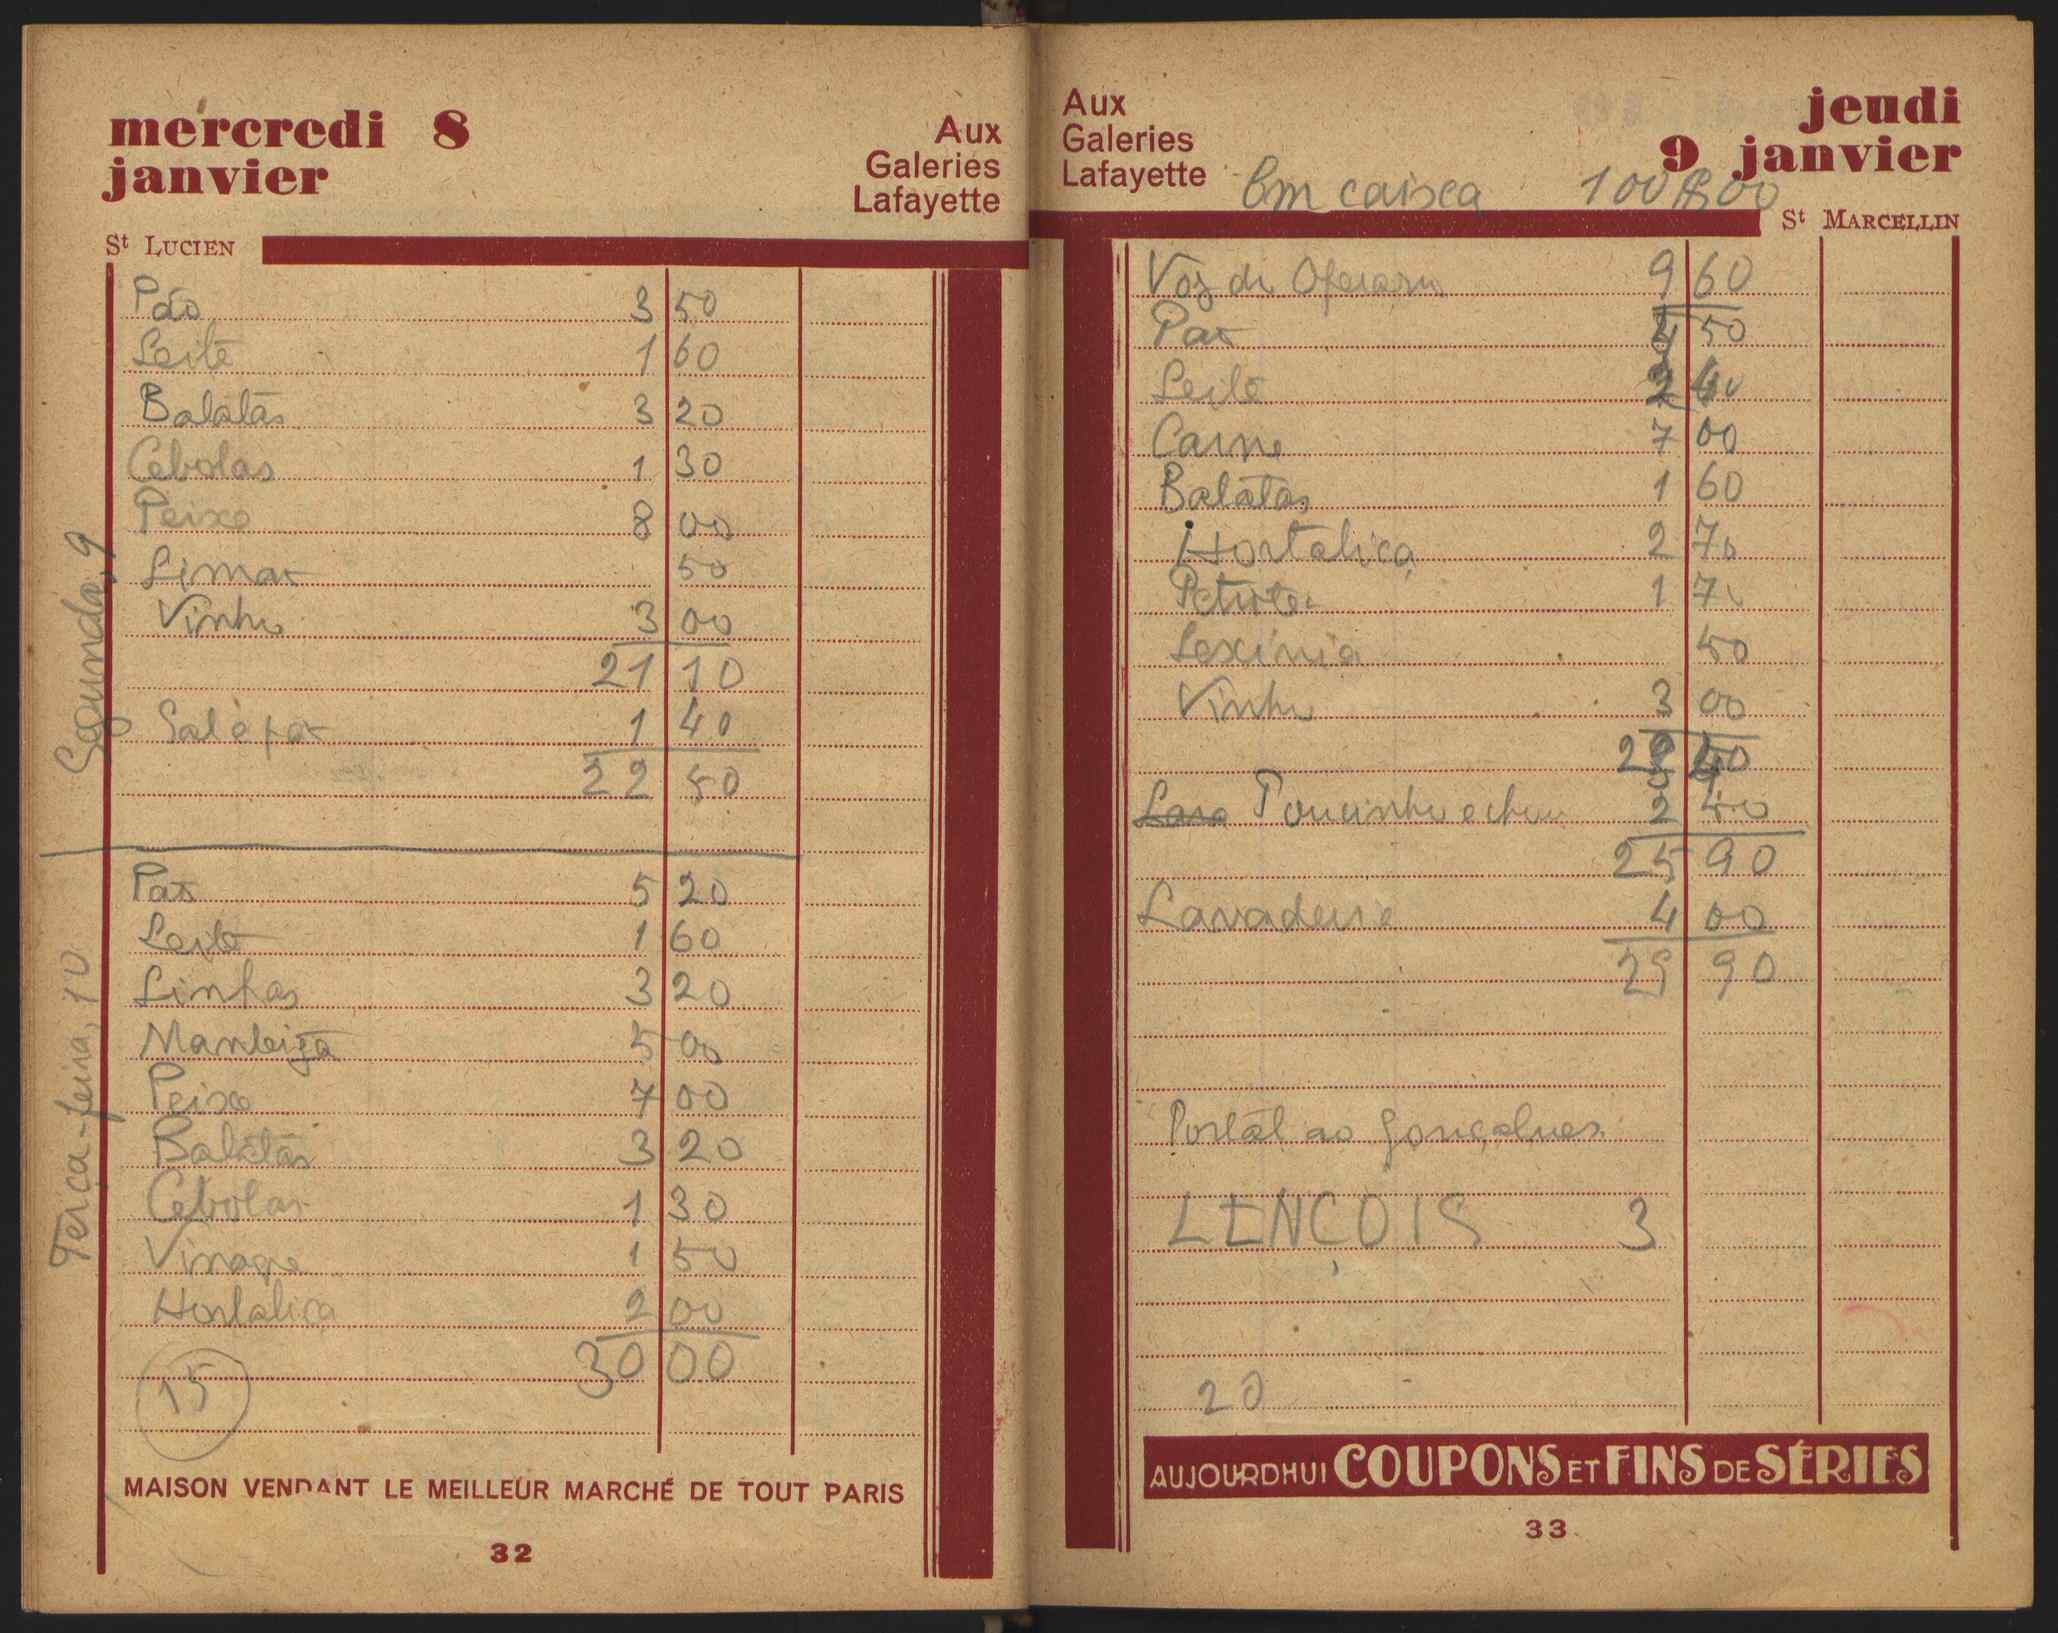 mercredi 8
janvier
Aux
Galeries
Lafayette
St LUCIEN
Segunda, 9
Pão 3 50
Leite 1 60
Batatas 3 20
Cebolas 1 30
Peixe 8 00
Limão 50
Vinho 3 00
21 10
Sal e pão 1 40
22 50
Terça-feira, 10
Pão 5 20
Leite 1 60
Linhas 3 20
Manteiga 5 00
Peixe 7 00
Batatas 3 20
Cebolas 1 30
Vinagre 1 50
Hortaliça 2 00
30 00
15
MAISON VENDANT LE MEILLEUR MARCHÉ DE TOUT PARIS
32
Aux
Galeries
Lafayette
jeudi
9 janvier
Em caixa 100$00
St MARCELLIN
Voz do Operario 9 60
Pão 50
Leite
Carne 7 00
Batatas 1 60
Hortaliça 2 70
Petroleo 1 70
Lexivia 50
Vinho 3 00
Toucinho e 2 40
25 90
Lavadeira 4 00
29 90
Postal ao Gonçalves
LENÇOIS 3
20
AUJOURDHUI COUPONS ET FINS DE SÉRIES
33